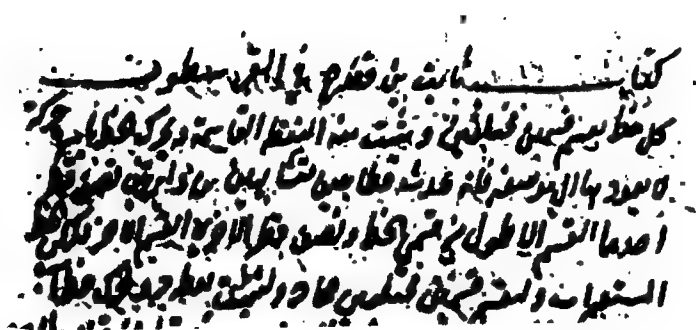 كتاب ثابت بن قره في القرسطون
كل خط يقسم قسمين مختلفين ويثبت منه النقطة القاسمة ويحرك الخط باسره حركة
لا يعود بها الى موضعه فانه يحدث قطاعين متشابهين من دائرتين نصف قطر
احدهما القسم الاطول من قسمي الخط ونصف قطر الاخرى القسم الاخر فليكن الخط
المستقيم وليقسم قسمين مختلفين خط